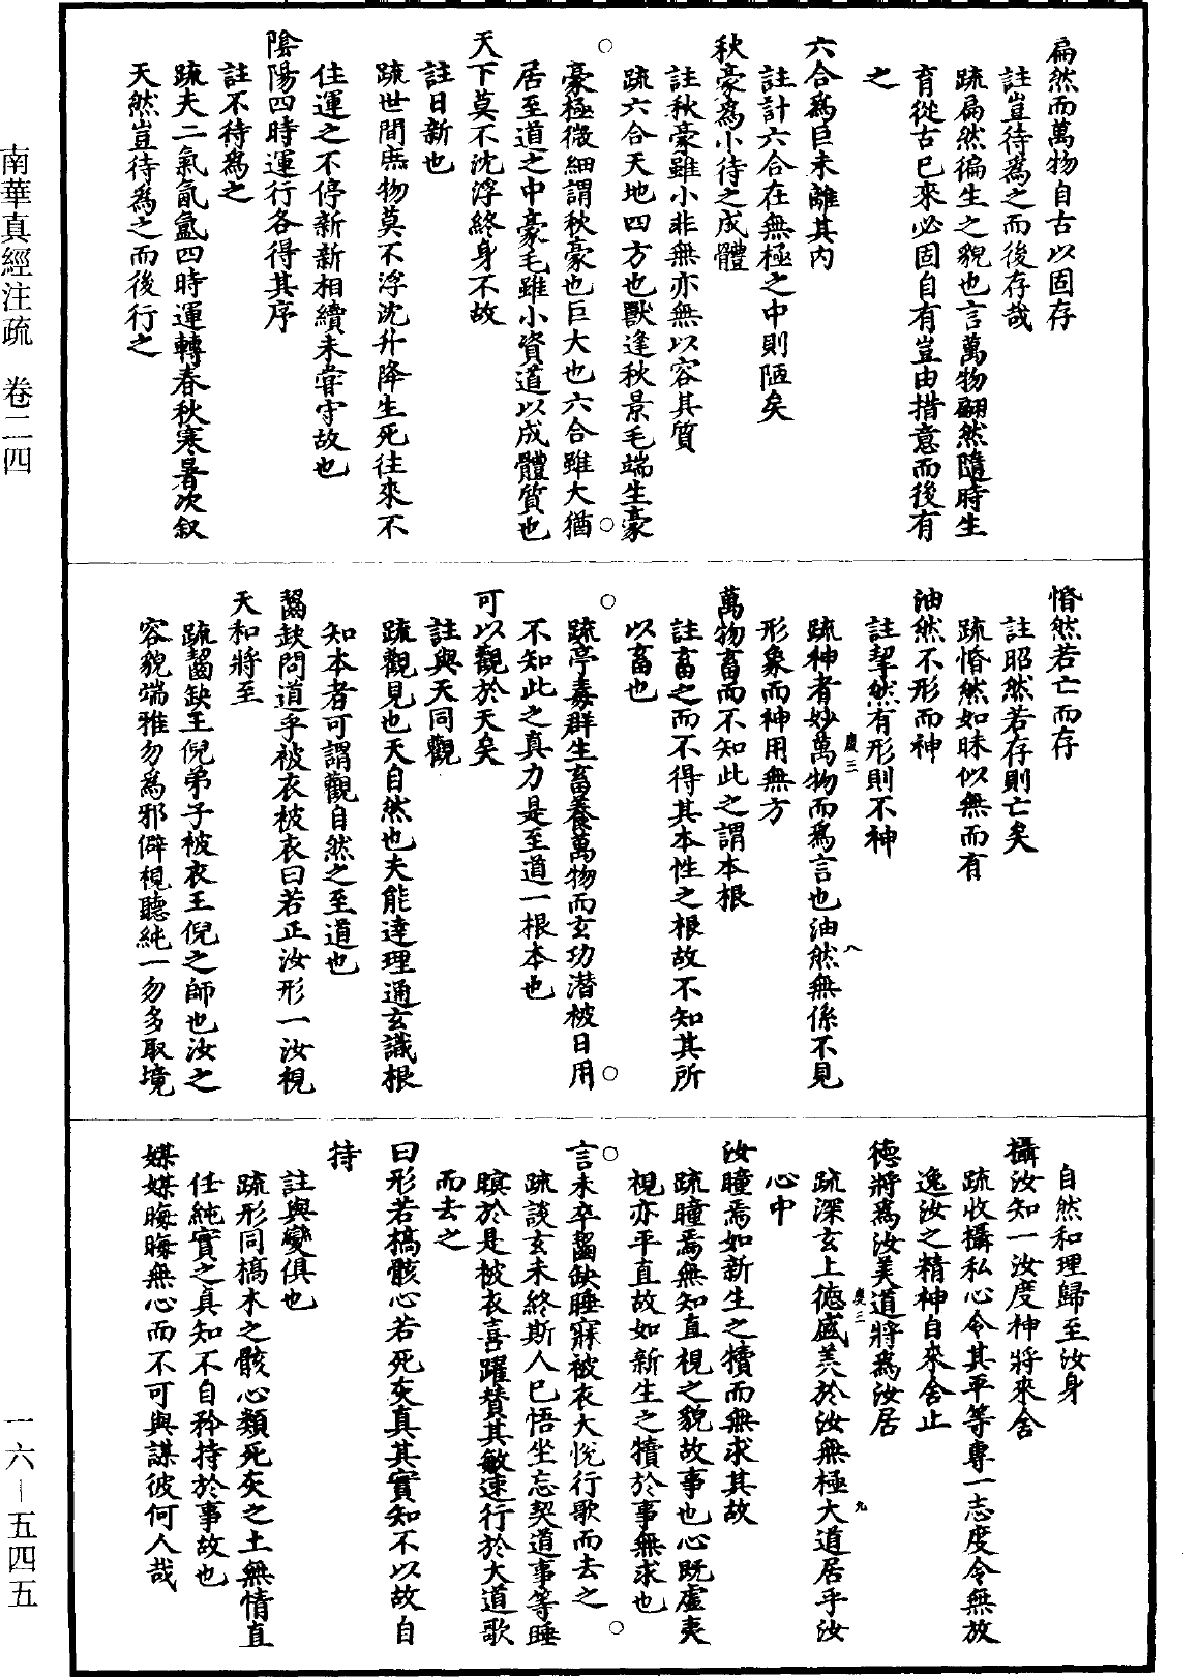 扁然而萬物自古以固存
註豈待為之而後存哉
疏扁然徧生之貌也言萬物翩然隨時生
育從古已來必固自有豈由措意而後有
之
六合為巨未離其內
註計六合在無極之中則陋矣
秋豪為小待之成體
註秋豪雖小非無亦無以容其質
疏六合天地四方也獸逢秋景毛端生豪
豪極微細謂秋豪也巨大也六合雖大猶
居至道之中豪毛雖小資道以成體質也
天下莫不沈浮終身不故
註日新也
疏世間庶物莫不浮沈升降生死往來不
住運之不停新新相續未嘗守故也
陰陽四時運行各得其序
註不待為之
疏夫二氣氤氳四時運轉春秋寒暑次叙
天然豈待為之而後行之
惛然若亡而存
註昭然若存則亡矣
疏惛然如昧似無而有
油然不形而神
註挈然有形則不神
疏神者妙萬物而為言也油然無係不見
形象而神用無方
萬物畜而不知此之謂本根
註畜之而不得其本性之根故不知其所
以畜也
疏亭毒群生畜養萬物而玄功潛被日用
不知此之真力是至道一根本也
可以觀於天矣
註與天同觀
疏觀見也天自然也夫能達理通玄識根
知本者可謂觀自然之至道也
齧缺問道乎被衣被衣曰若正汝形一汝視
天和將至
疏齧缺王倪弟子被衣王倪之師也汝之
容貌端雅勿為邪僻視聽純一勿多取境
慶三
八
自然和理歸至汝身
攝汝知一汝度神將來舍
疏收攝私心令其平等專一志度令無放
逸汝之精神自來舍止
德將為汝美道將為汝居
疏深玄上德盛美於汝無極大道居乎汝
心中
汝瞳焉如新生之犢而無求其故
疏瞳焉無知直視之貌故事也心既虛夷
視亦平直故如新生之犢於事無求也
言未卒齧缺睡寐被衣大悅行歌而去之
疏談玄未終斯人已悟坐忘契道事等睡
瞑於是被衣喜躍贊其敏速行於大道歌
而去之
曰形若槁骸心若死灰真其實知不以故自
持
註與變俱也
疏形同槁木之骸心類死灰之土無情直
任純實之真知不自矜持於事故也
媒媒晦晦無心而不可與謀彼何人哉
慶三
九
南華真經注疏　卷二四
一六－五四五